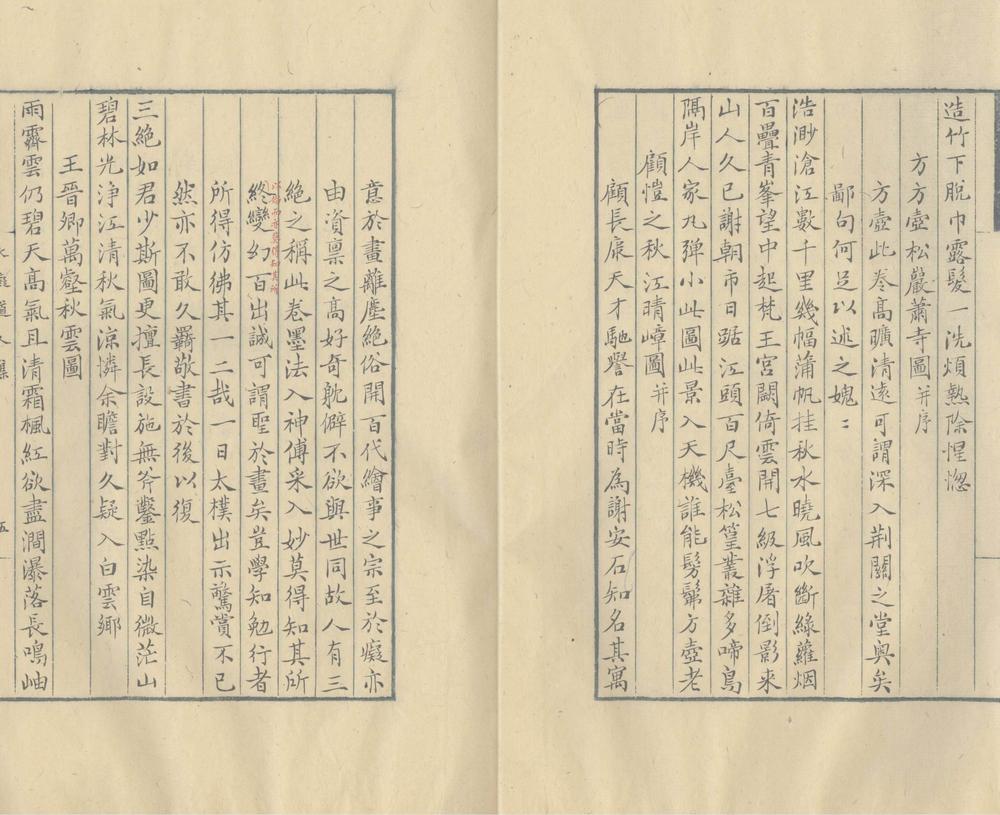 造竹下脫巾露髮一洗煩熱除惺惚
方方壺松巖蕭寺圖并序
方壺此卷高曠清遠可謂深入荆關之堂奧矣
鄙句何足以述之媿〻
浩渺滄江數千里幾幅蒲帆挂秋水曉風吹斷綠蘿烟
百疊青峯望中起梵王宮闕倚雲開七級浮屠倒影來
山人久已謝朝市日踞江頭百尺臺松篁叢雜多啼鳥
隔岸人家丸彈小此圖此景入天機誰能髣髴方壺老
顧愷之秋江晴嶂圖并序
顧長康天才馳譽在當時為謝安石知名其寓
意於畫離塵絕俗開百代繪事之宗至於癡亦
由資稟之高好奇躭僻不欲與世同故人有三
絕之稱此卷墨法入神傅采入妙莫得知其所
終變幻百出誠可謂聖於畫矣豈學知勉行者
所得仿彿其一二哉一日太樸出示驚賞不已
然亦不敢久覊敬書於後以復
三絕如君少斯圖更擅長設施無斧鑿點染自微茫山
碧林光浄江清秋氣涼憐余瞻對久疑入白雲鄉
王晉卿萬壑秋雲圖
雨霽雲仍碧天高氣且清霜楓紅欲盡澗瀑落長鳴岫
五